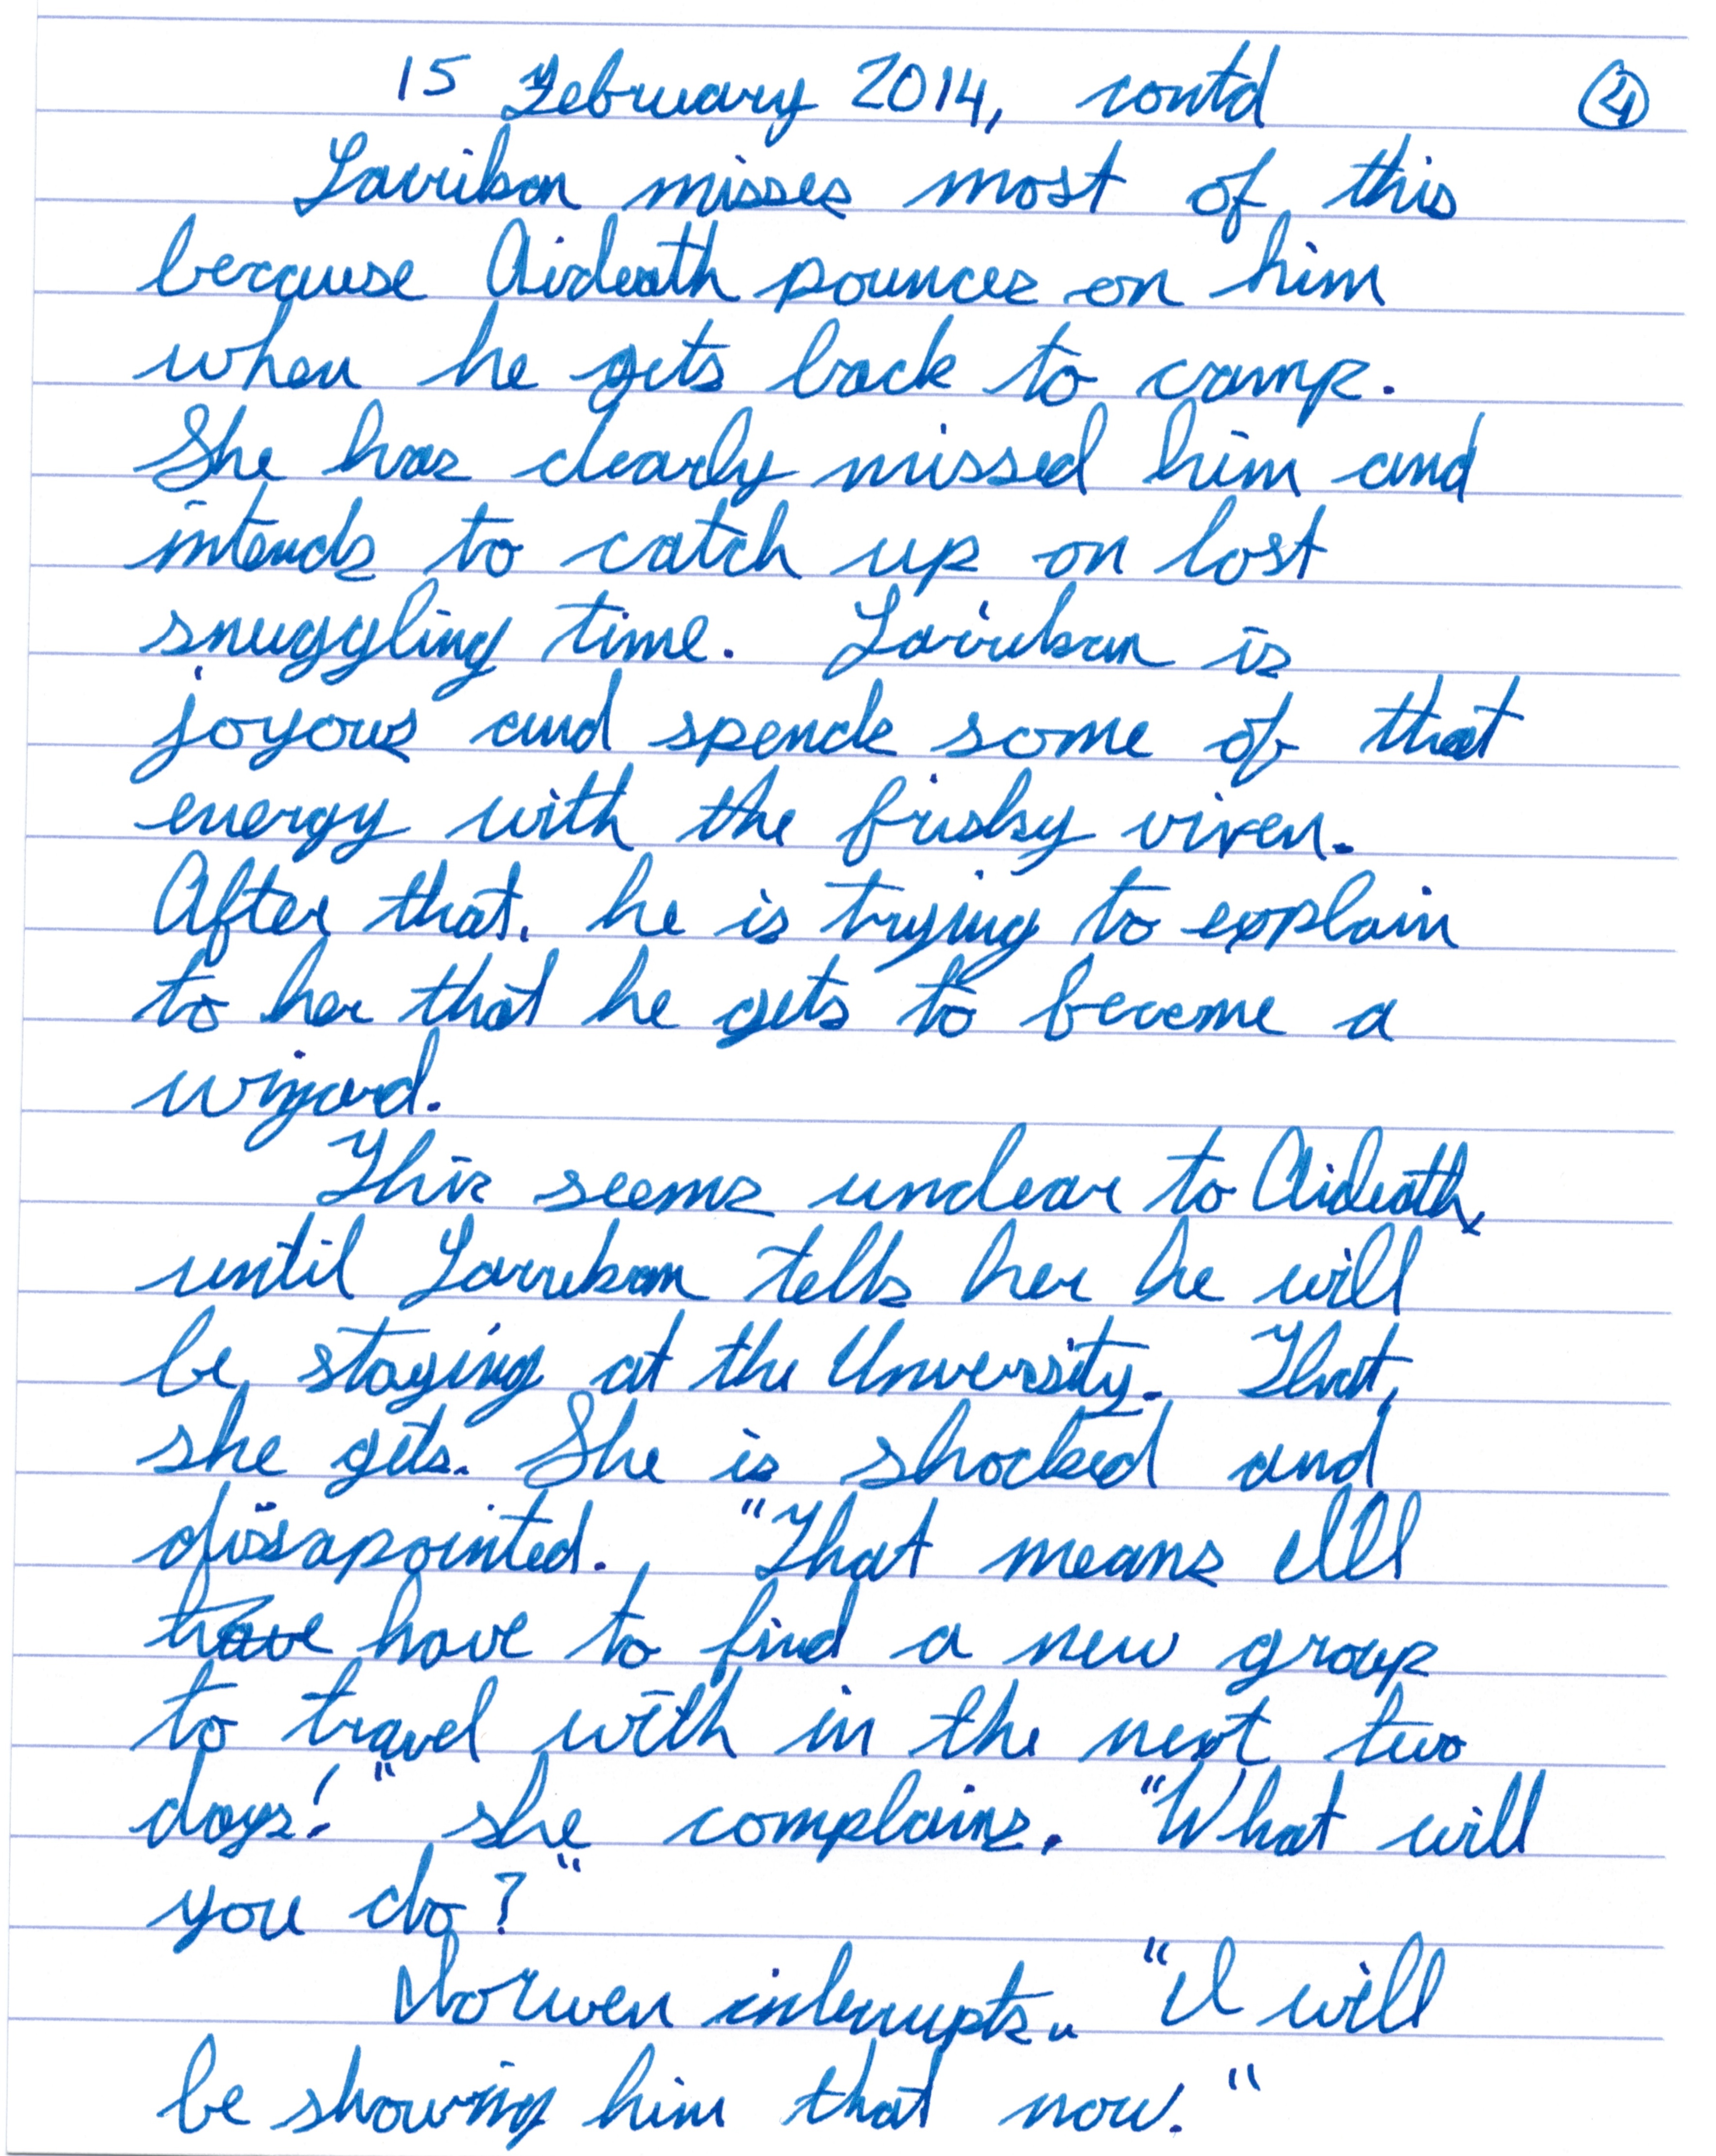 15 February 2014, contd ④
Lauriban misses most of this
because Aideath pounces on him
when he gets back to camp.
She has clearly missed him and
intends to catch up on lost
snuggling time. Lauriban is
joyous and spends some of that
energy with the frisky vixen.
After that, he is trying to explain
to her that he gets to become a
wizard.
This seems unclear to Aideath,
until Lauriban tells her he will
be staying at the Unversity. That,
she gets. She is shocked and
dissapointed. "That means I'll
have have to find a new group
to travel with in the next two
days!" she complains. "What will
you do?"
Norwen interrupts. "I will
be showing him that now."